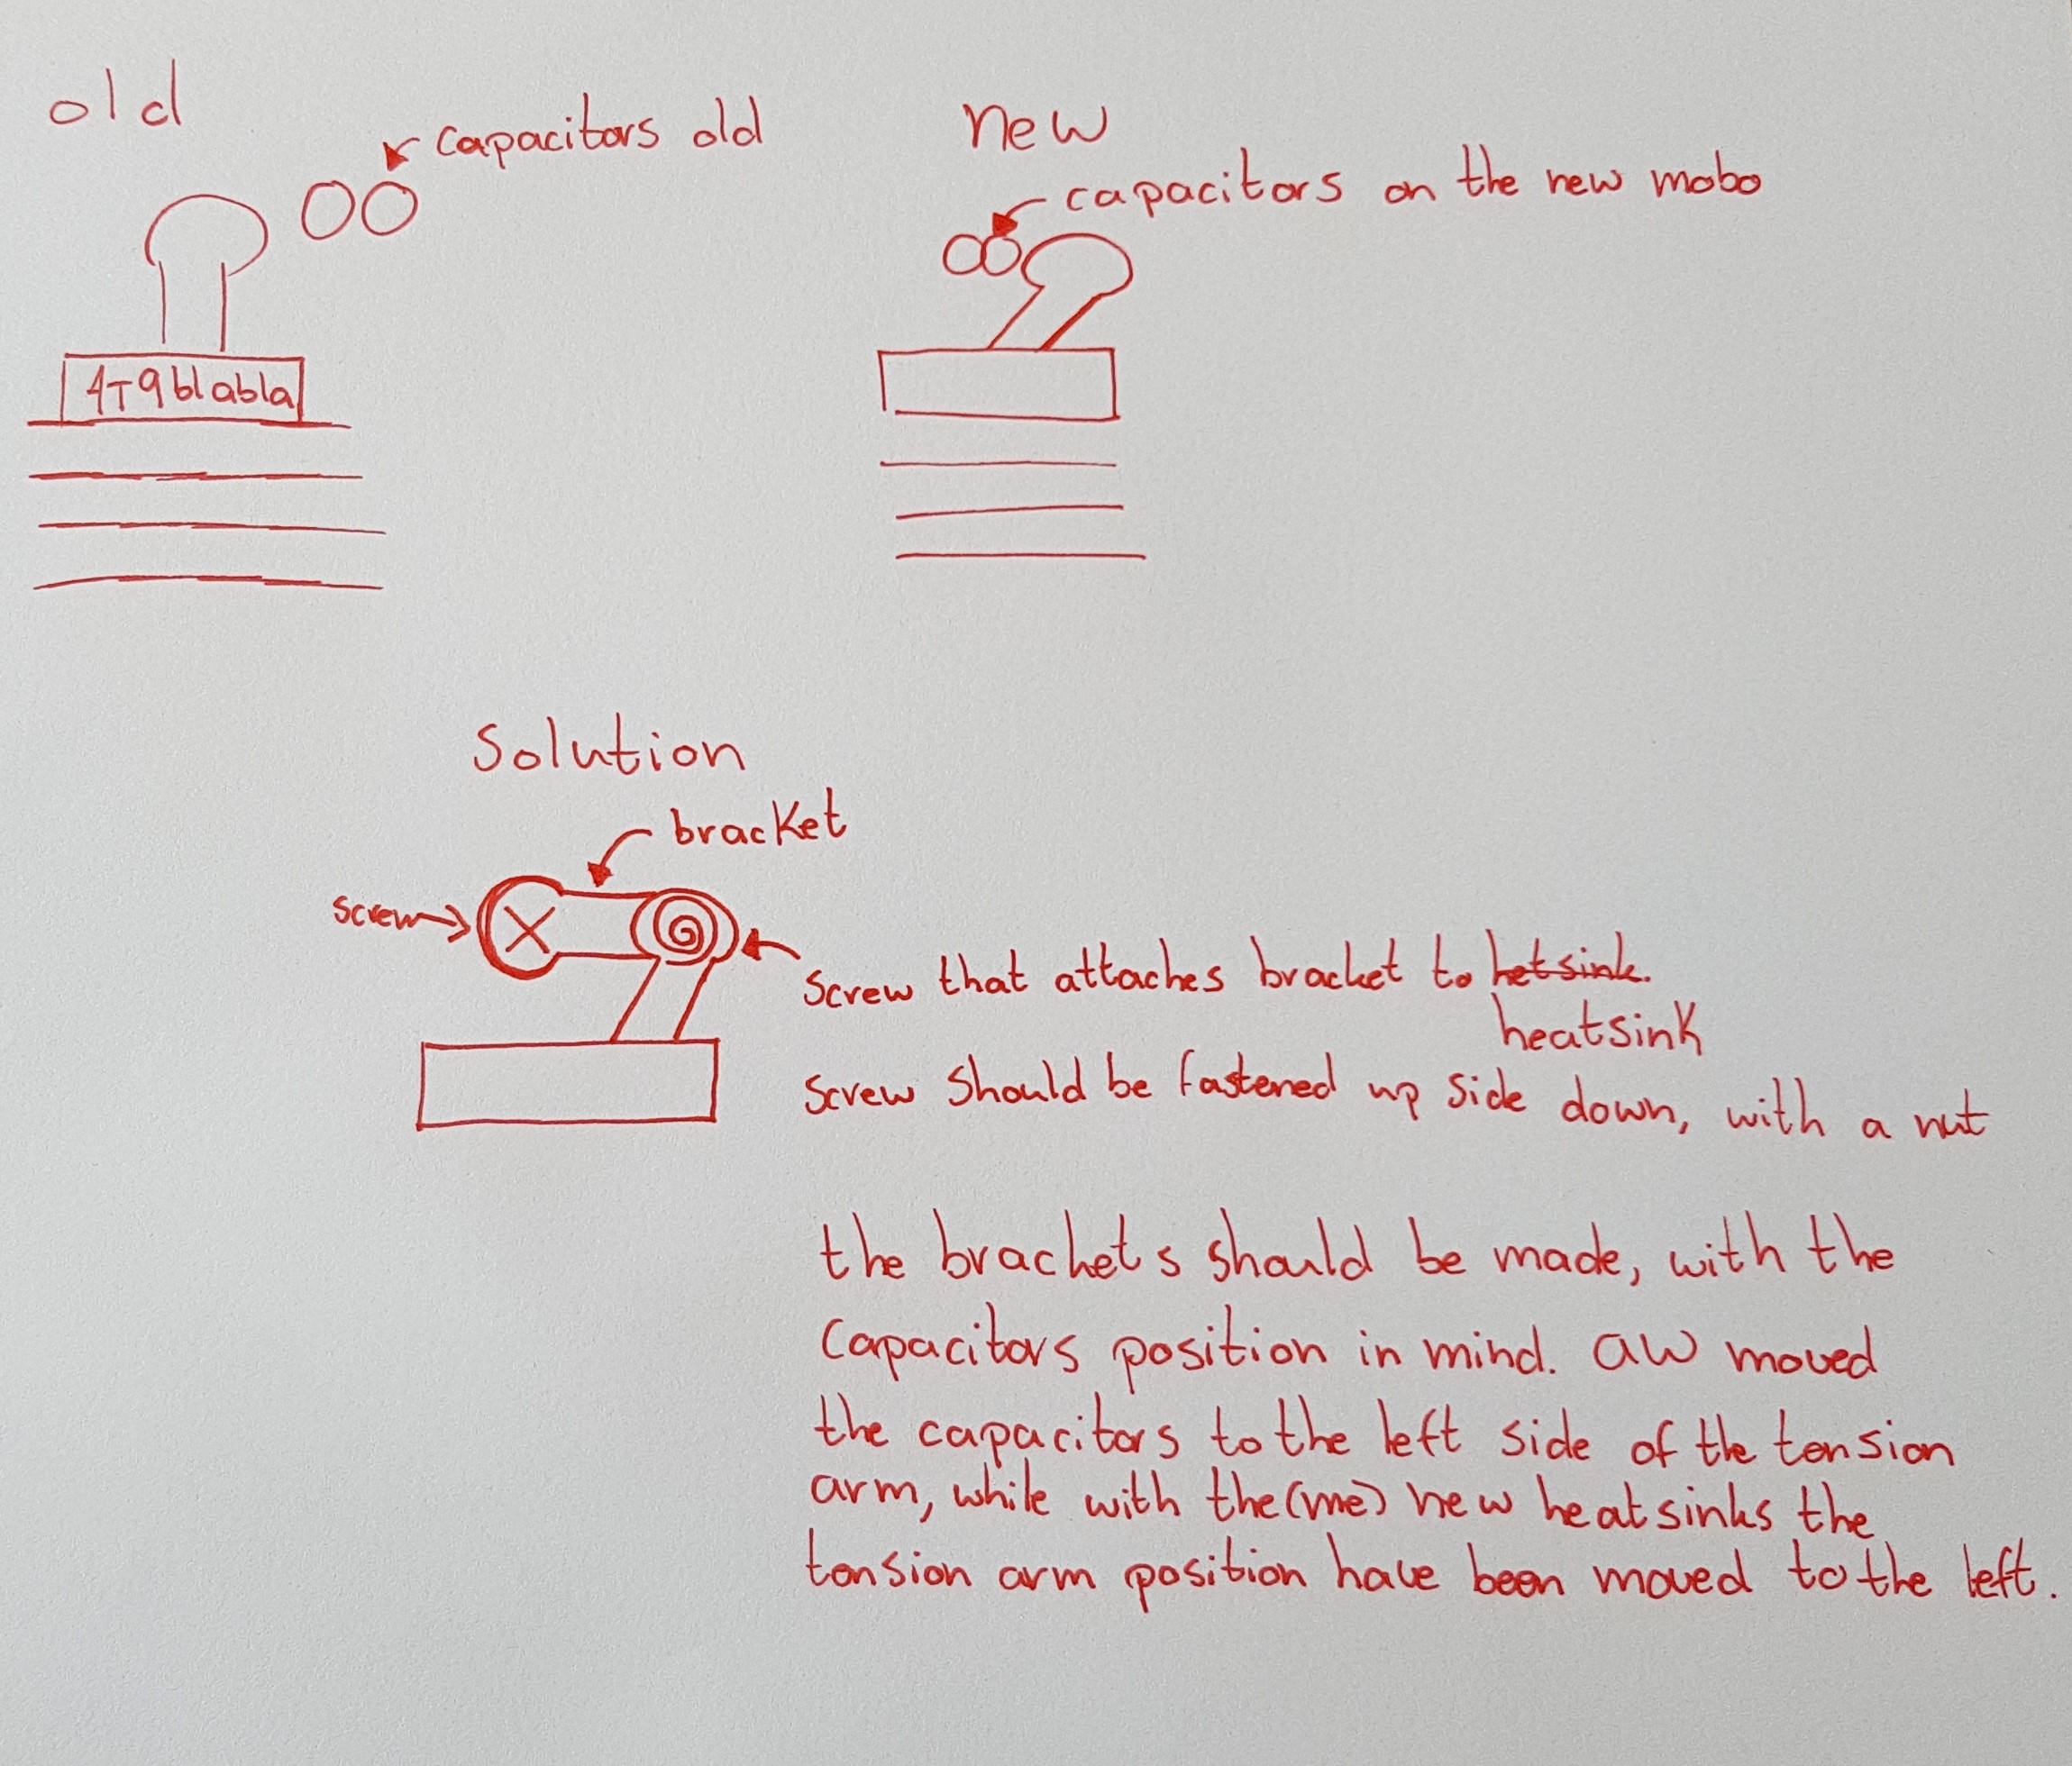 old
capacitors old
new
capacitors on the new mobo
4T9blabla
Solution
bracket
screw
Screw that attaches bracket to hetsink.
heatsink
Screw Should be fastened up side down, with a nut
the brackets should be made, with the
Capacitors position in mind. AW moved
the capacitors to the left side of the tension
arm, while with the(me) new heatsinks the
tension arm position have been moved to the left.